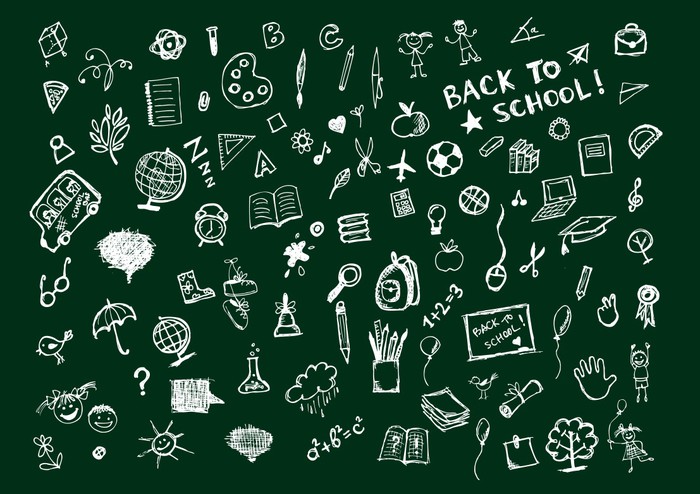 B
C
α
BACK TO
SCHOOL!
Z
Z
Z
Z
A
SCHOOL
BUS
1+2=3
BACK TO
SCHOOL!
?
a²+b²=c²
?